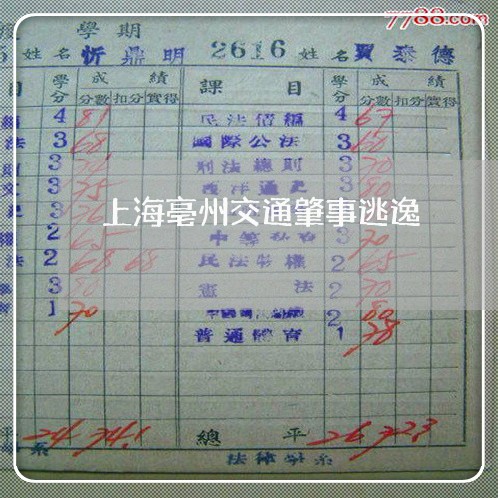 7788.com
學期
姓名 忻鼎明 2616 姓名 賈泰德
目 學分 成績 課目 學分 成績
分數 扣分 實得 分數 扣分 實得
4 81 民法債編 4 67
法 3 68 國際公法 3 60
3 刑法總則 3 70
3 75 西洋通史 3 80
上海亳州交通肇事逃逸
2 65 3 70
法 2 68 68 民法物權 2 65
3 80 憲法 2 70
1 70 2 80
普通體育 1 78
平 24 74.1 總平 26 72.3
系 法律學系